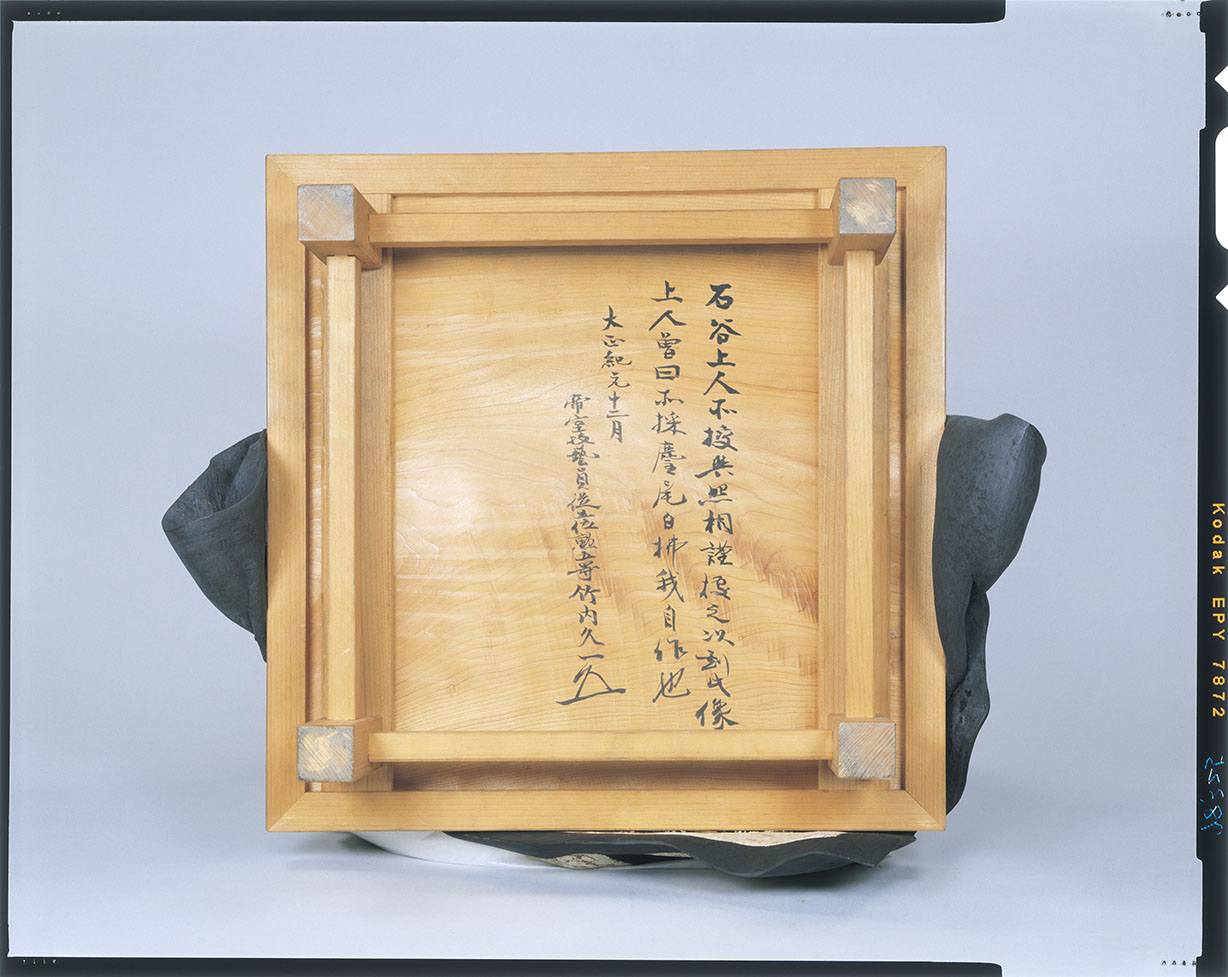 石谷上人不授其照相謹授之次到此像
上人曽曰不採麈尾白拂我自作也
大正紀元十二月
帝室技藝員從五位勲五等竹内久一
Kodak EPY 7872